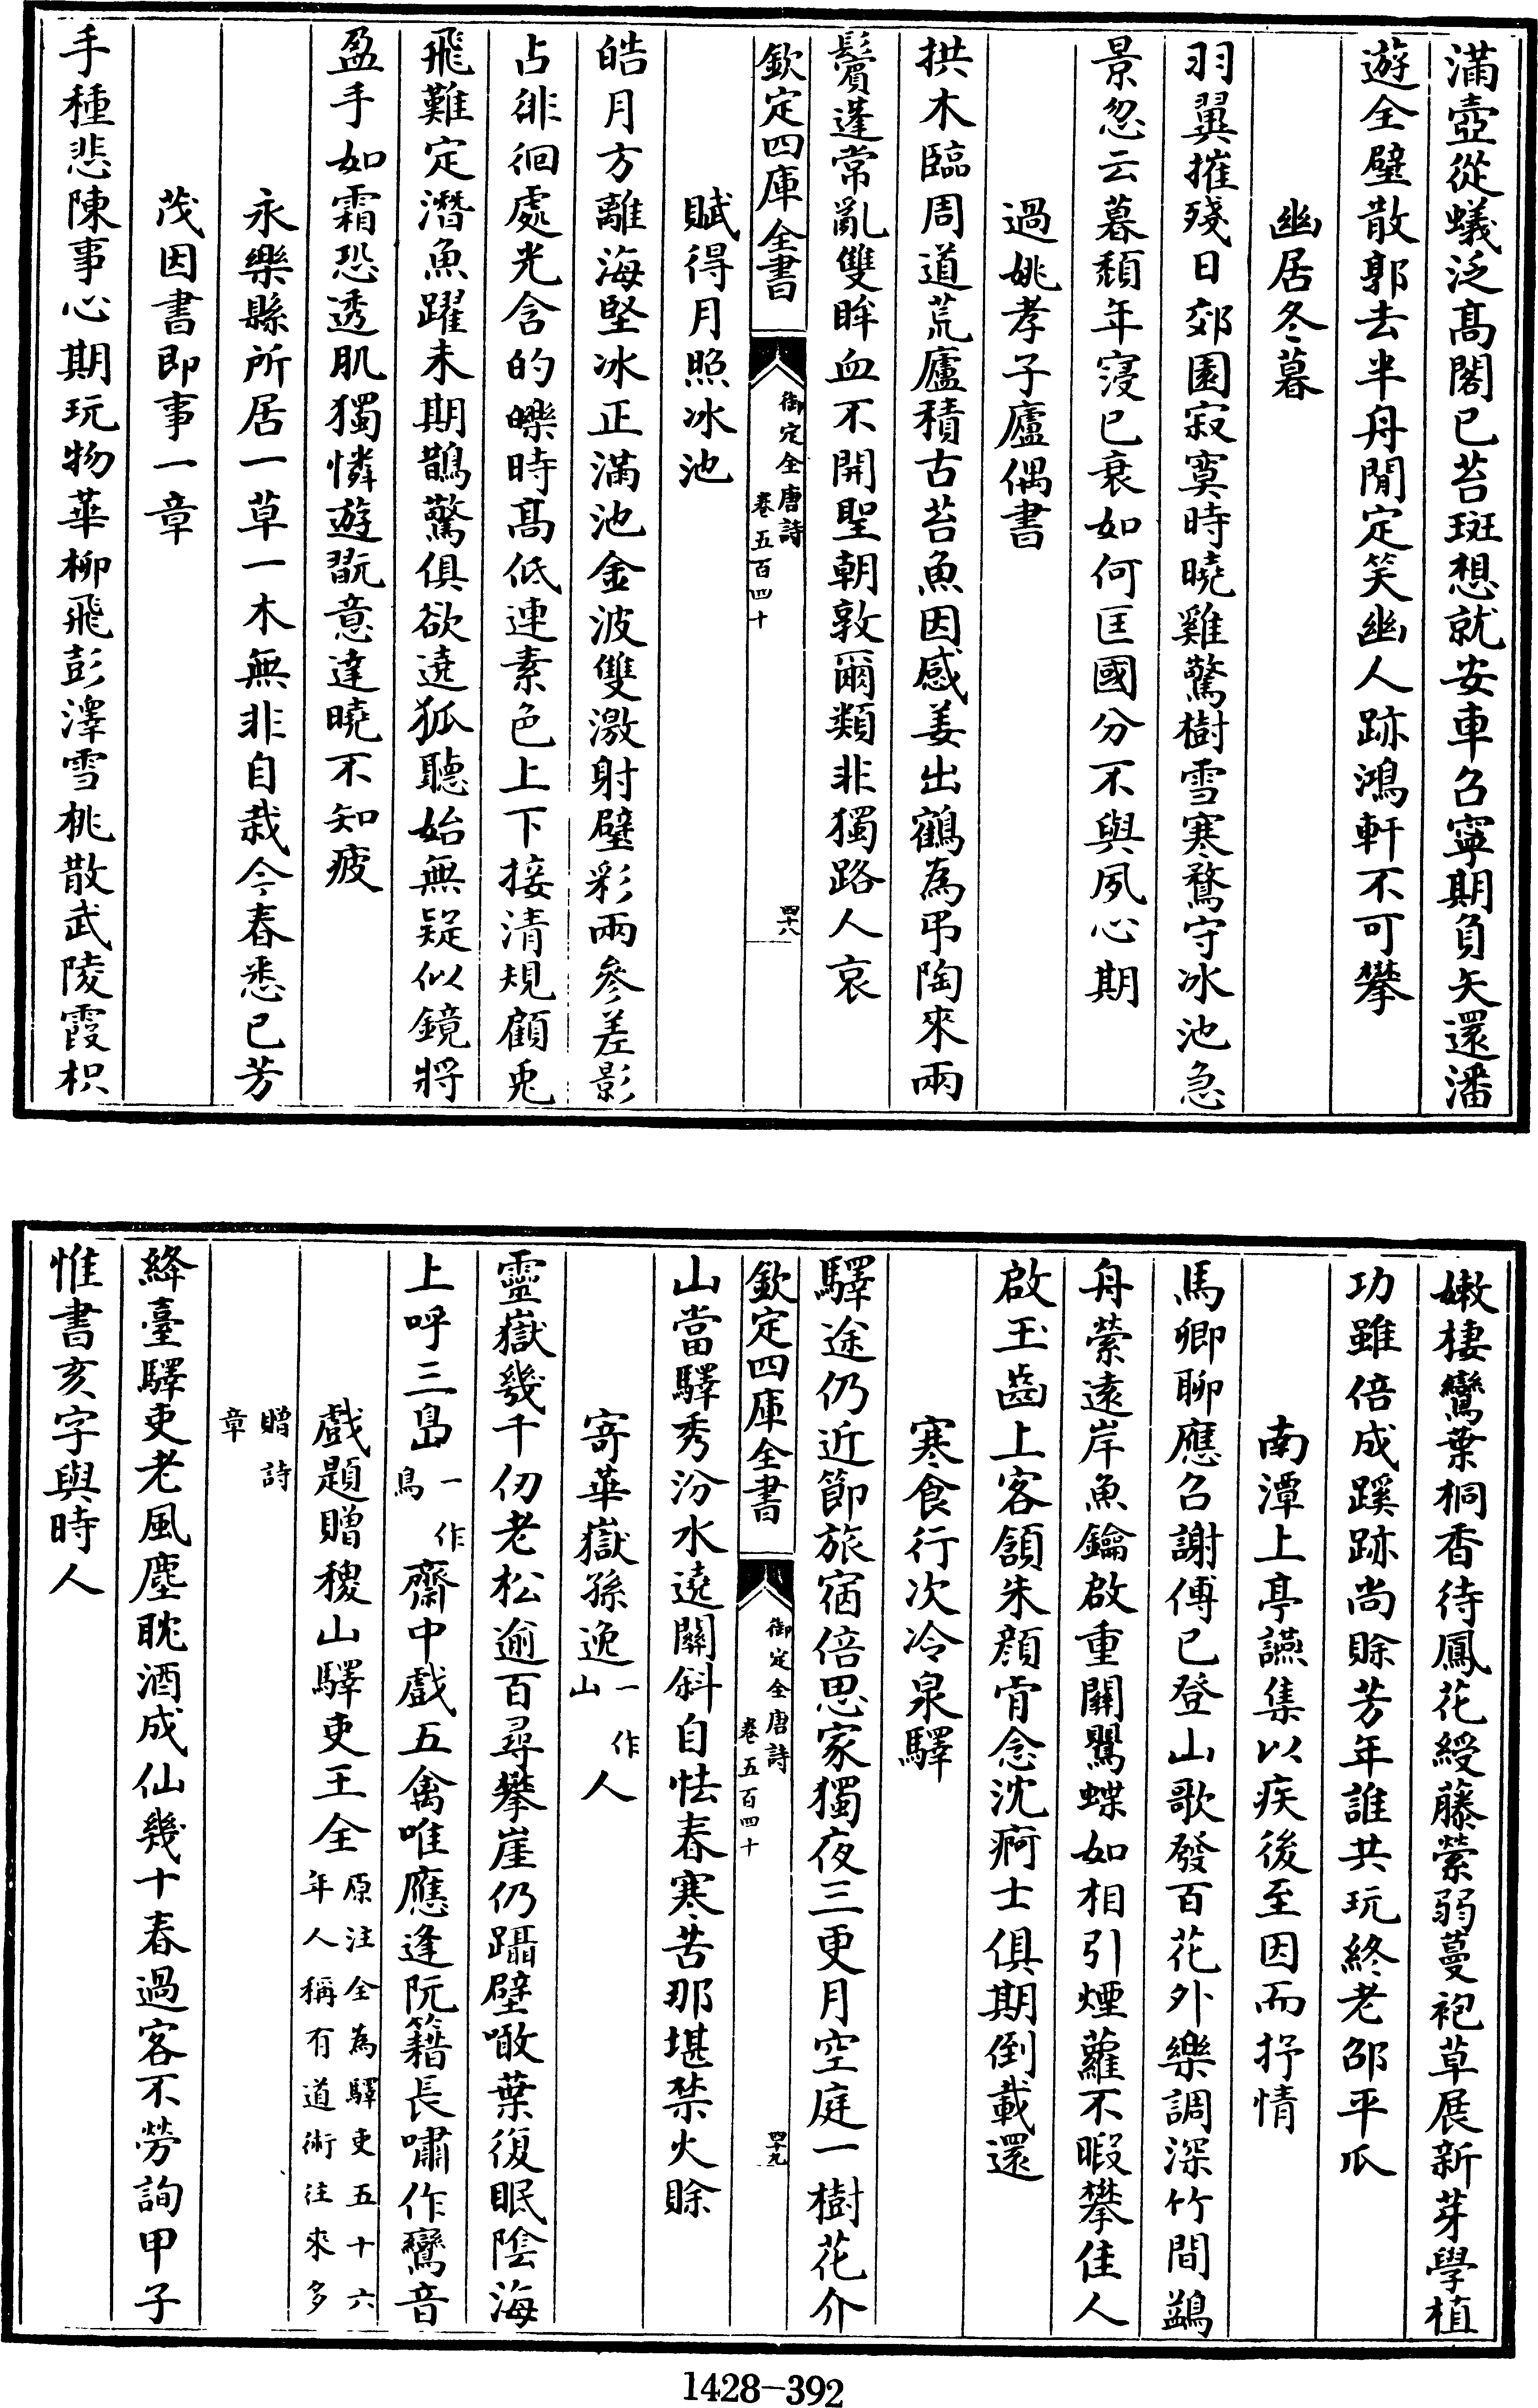 滿壺從蟻泛高閣已苔斑想就安車召寧期負矢還潘
遊全璧散郭去半舟閒定笑幽人跡鴻軒不可攀
幽居冬暮
羽翼摧殘日郊園寂寞時曉雞驚樹雪寒鶩守冰池急
景忽云暮頹年寖已衰如何匡國分不與夙心期
過姚孝子廬偶書
拱木臨周道荒廬積古苔魚因感姜出鶴為弔陶來兩
鬢蓬常亂雙眸血不開聖朝敦爾類非獨路人哀
欽定四庫全書
御定全唐詩
卷五百四十
四十八
賦得月照冰池
皓月方離海堅冰正滿池金波雙激射璧彩兩參差影
占徘徊處光含的皪時高低連素色上下接清規顧兎
飛難定潛魚躍未期鵲驚俱欲遶狐聽始無疑似鏡將
盈手如霜恐透肌獨憐遊翫意達曉不知疲
永樂縣所居一草一木無非自栽今春悉已芳
茂因書即事一章
手種悲陳事心期玩物華柳飛彭澤雪桃散武陵霞枳
嫩棲鸞葉桐香待鳳花綬藤縈弱蔓袍草展新芽學植
功雖倍成蹊跡尚賖芳年誰共玩終老邵平瓜
南潭上亭讌集以疾後至因而抒情
馬卿聊應召謝傅已登山歌發百花外樂調深竹間鷁
舟縈遠岸魚鑰啟重關鸎蝶如相引煙蘿不暇攀佳人
啟玉齒上客頷朱顔肯念沈痾士俱期倒載還
寒食行次冷泉驛
驛途仍近節旅宿倍思家獨夜三更月空庭一樹花介
欽定四庫全書
御定全唐詩
卷五百四十
四十九
山當驛秀汾水遶關斜自怯春寒苦那堪禁火賖
寄華嶽孫逸一作山人
靈嶽幾千仞老松逾百尋攀崖仍躡壁噉葉復眠陰海
上呼三島一作鳥齋中戲五禽唯應逢阮籍長嘯作鸞音
戲題贈稷山驛吏王全原注全為驛吏五十六年人稱有道術往來多
贈詩章
絳臺驛吏老風塵耽酒成仙幾十春過客不勞詢甲子
惟書亥字與時人
1428-392